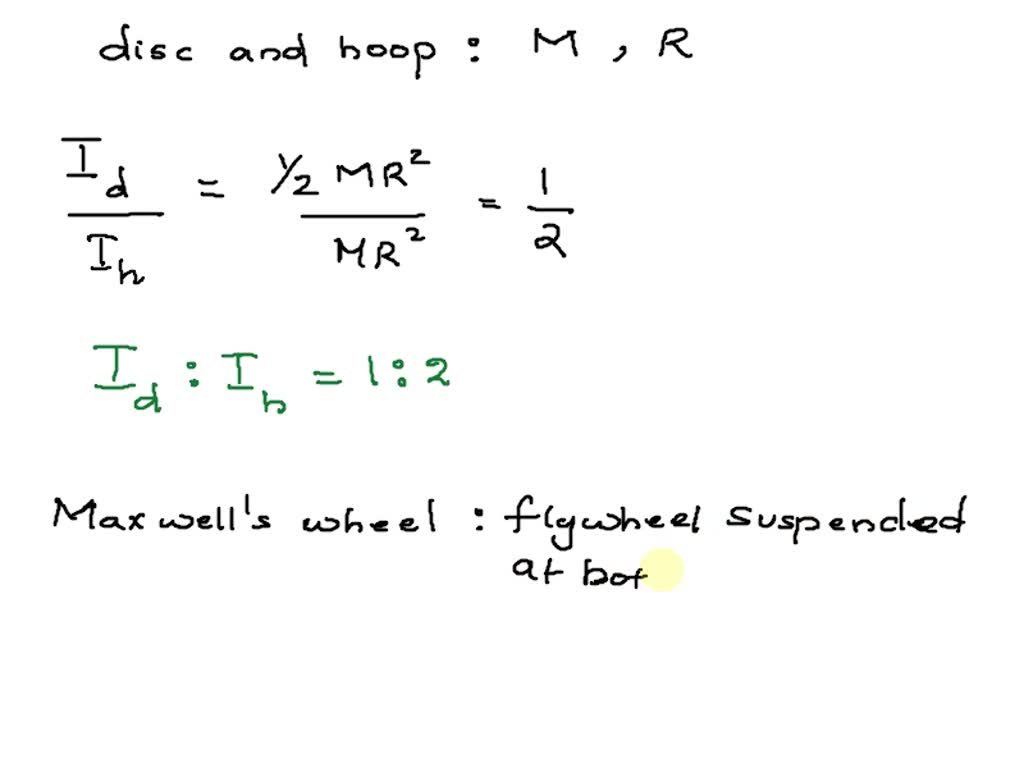 disc and hoop : M , R
I_d / I_h = 1/2 MR² / MR² = 1/2
I_d : I_h = 1 : 2
Maxwell's wheel : flywheel suspended
at bot